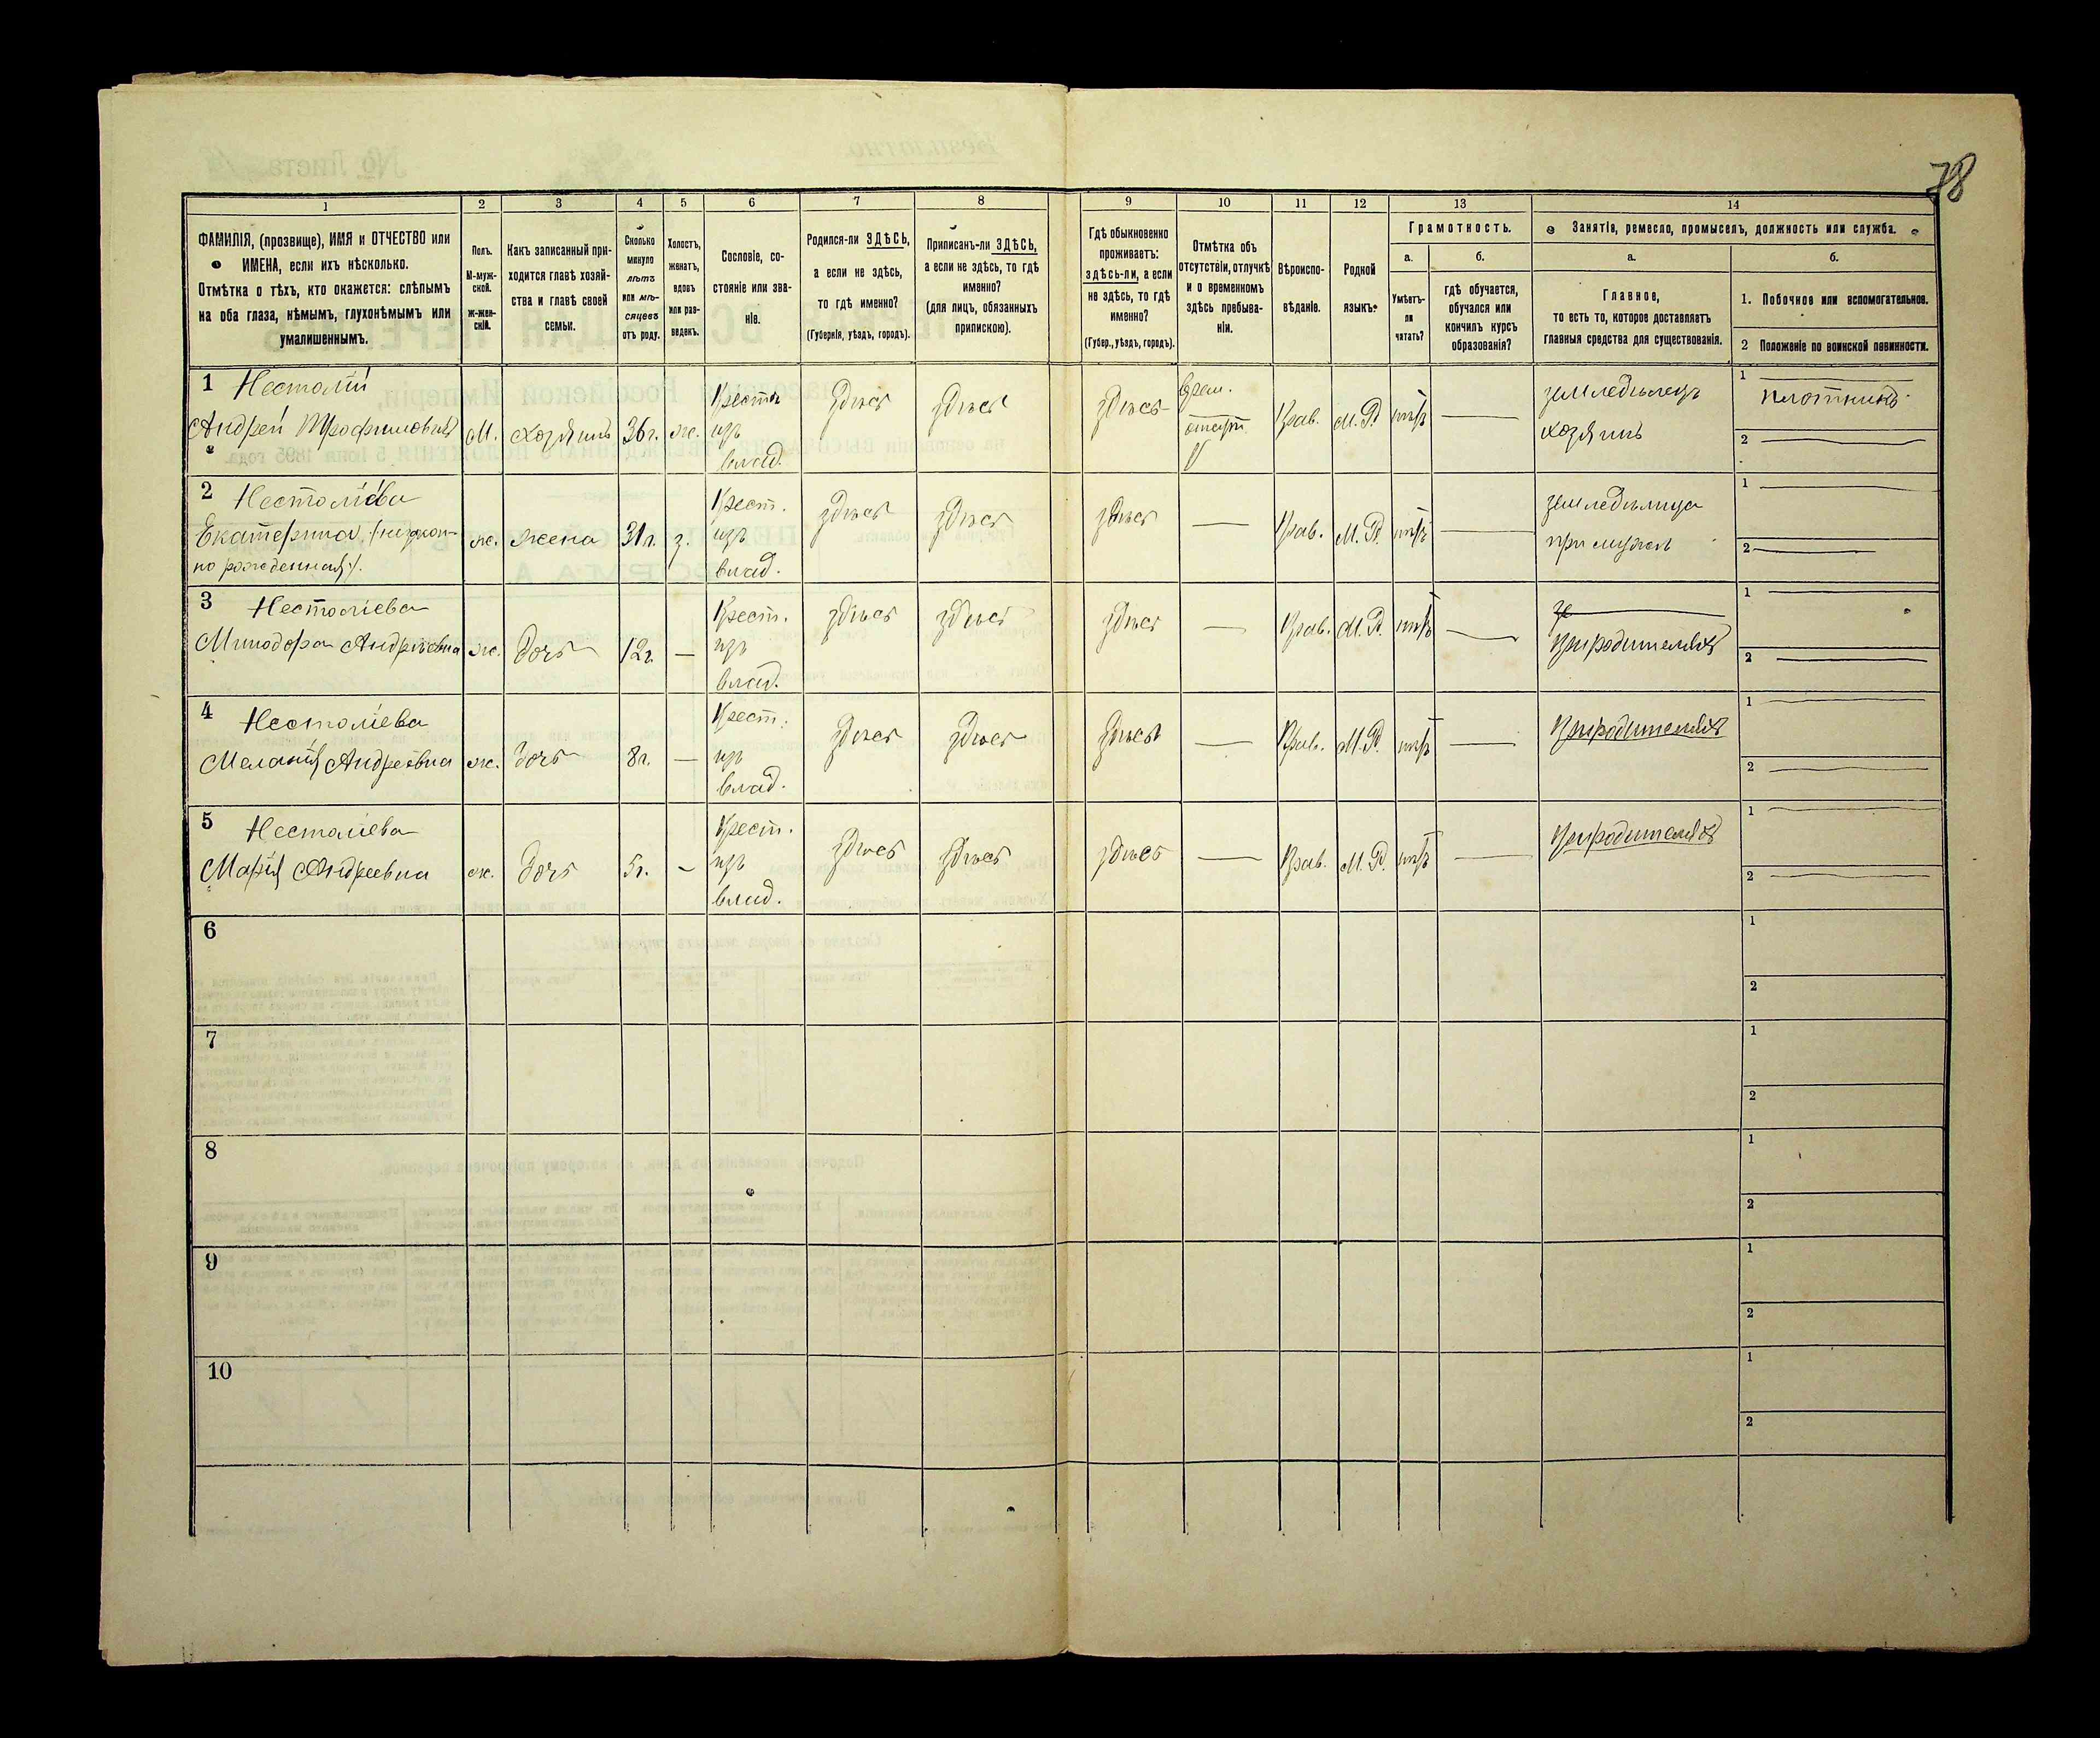 78
1 2 3 4 5 6 7 8 9 10 11 12 13 14
ФАМИЛІЯ, (прозвище), ИМЯ и ОТЧЕСТВО или
ИМЕНА, если ихъ нѣсколько.
Отмѣтка о тѣхъ, кто окажется: слѣпымъ
на оба глаза, нѣмымъ, глухонѣмымъ или
умалишеннымъ.
Полъ.
М-муж-
ской.
ж-жен-
скій.
Какъ записанный при-
ходится главѣ хозяй-
ства и главѣ своей
семьи.
Сколько
минуло
лѣтъ
или мѣ-
сяцевъ
отъ роду.
Холостъ,
женатъ,
вдовъ
или раз-
веденъ.
Сословіе, со-
стояніе или зва-
ніе.
Родился-ли ЗДѢСЬ,
а если не здѣсь,
то гдѣ именно?
(Губернія, уѣздъ, городъ).
Приписанъ-ли ЗДѢСЬ,
а если не здѣсь, то гдѣ
именно?
(для лицъ, обязанныхъ
припискою).
Гдѣ обыкновенно
проживаетъ:
здѣсь-ли, а если
не здѣсь, то гдѣ
именно?
(Губер., уѣздъ, городъ).
Отмѣтка объ
отсутствіи, отлучкѣ
и о временномъ
здѣсь пребыва-
ніи.
Вѣроиспо-
вѣданіе.
Родной
языкъ.
Грамотность.
а.
Умѣетъ-
ли
читать?
б.
гдѣ обучается,
обучался или
кончилъ курсъ
образованія?
Занятія, ремесло, промыселъ, должность или служба.
а.
Главное,
то есть то, которое доставляетъ
главныя средства для существованія.
б.
1. Побочное или вспомогательное.
2 Положеніе по воинской повинности.
1 Нестолій
Андрей Трофимовичъ
М.
хозяинъ
36 г.
ж.
Крестъ
изъ
влад.
здѣсь
здѣсь
здѣсь
врем.
Прав.
М. Р.
нѣтъ
земледѣлецъ
хозяинъ
1
плотникъ
2
2 Нестоліева
Екатерина
но рожденная
ж.
жена
31 г.
з.
Крест.
изъ
влад.
здѣсь
здѣсь
здѣсь
Прав.
М. Р.
нѣтъ
земледѣлица
при мужѣ
1
2
3 Нестоліева
Минодора Андреевна
ж.
дочь
12 г.
Крест.
изъ
влад.
здѣсь
здѣсь
здѣсь
Прав.
М. Р.
нѣтъ
при родителяхъ
1
2
4 Нестоліева
Меланія Андреевна
ж.
дочь
8 г.
Крест.
изъ
влад.
здѣсь
здѣсь
здѣсь
Прав.
М. Р.
нѣтъ
при родителяхъ
1
2
5 Нестоліева
Марія Андреевна
ж.
дочь
5 г.
Крест.
изъ
влад.
здѣсь
здѣсь
здѣсь
Прав.
М. Р.
нѣтъ
при родителяхъ
1
2
6
1
2
7
1
2
8
1
2
9
1
2
10
1
2